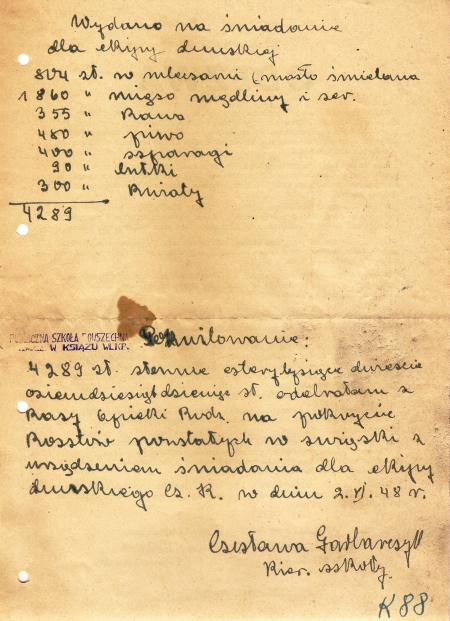 Wydano na śniadanie
dla ekipy duńskiej
804 zł. w mleczarni (masło śmietana
1 860 " mięso wędliny i ser.
355 " Kawa
480 " piwo
400 " szparagi
90 " lutki
300 " Kwiaty
4289
PUBLICZNA SZKOŁA POWSZECHNA
W KSIĄŻU WLKP.
Pokwitowanie:
4289 zł. słownie cztery tysiące dwieście
osiemdziesiąt dziewięć zł. odebrałam z
Kasy Opieki Rodz. na pokrycie
Kosztów powstałych w związku z
urządzeniem śniadania dla ekipy
duńskiego Cz. K. w dniu 2.VI.48 r.
Czesława
Kier. szkoły.
K 88